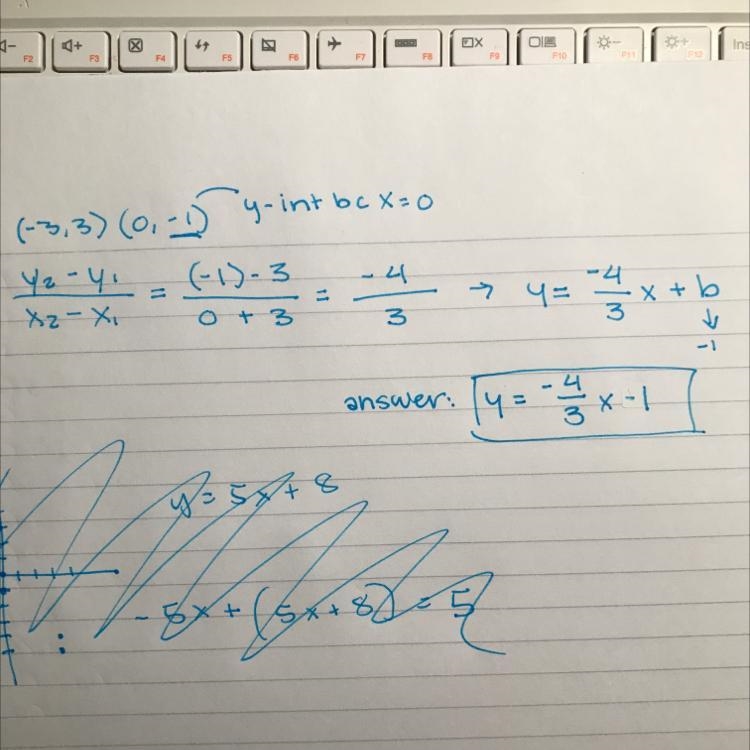 F2 F3 F4 F5 F6 F7 F8 F9 F10 F11 F12 Ins
(-3,3) (0, -1) y-int bc x=0
y₂ - y₁ / x₂ - x₁ = (-1) - 3 / 0 + 3 = -4 / 3 → y = -4/3 x + b
↓
-1
answer: y = -4/3 x -1
y = 5x + 8
- 5x + (5x + 8) = 5